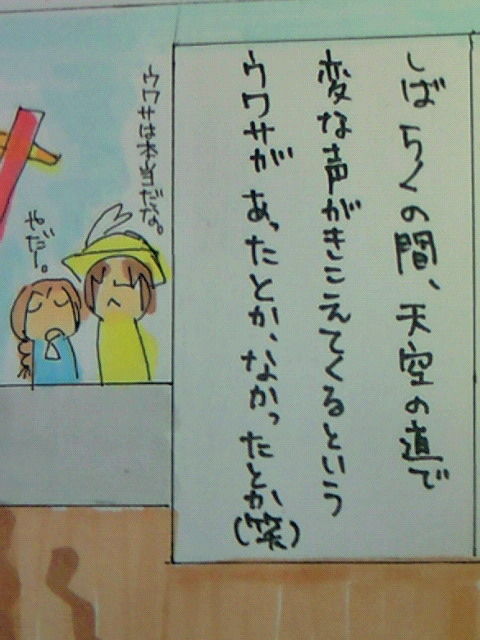 しばらくの間、天空の道で
変な声がきこえてくるという
ウワサがあったとか、なかったとか(笑)
ウワサは本当だな。
やだー。